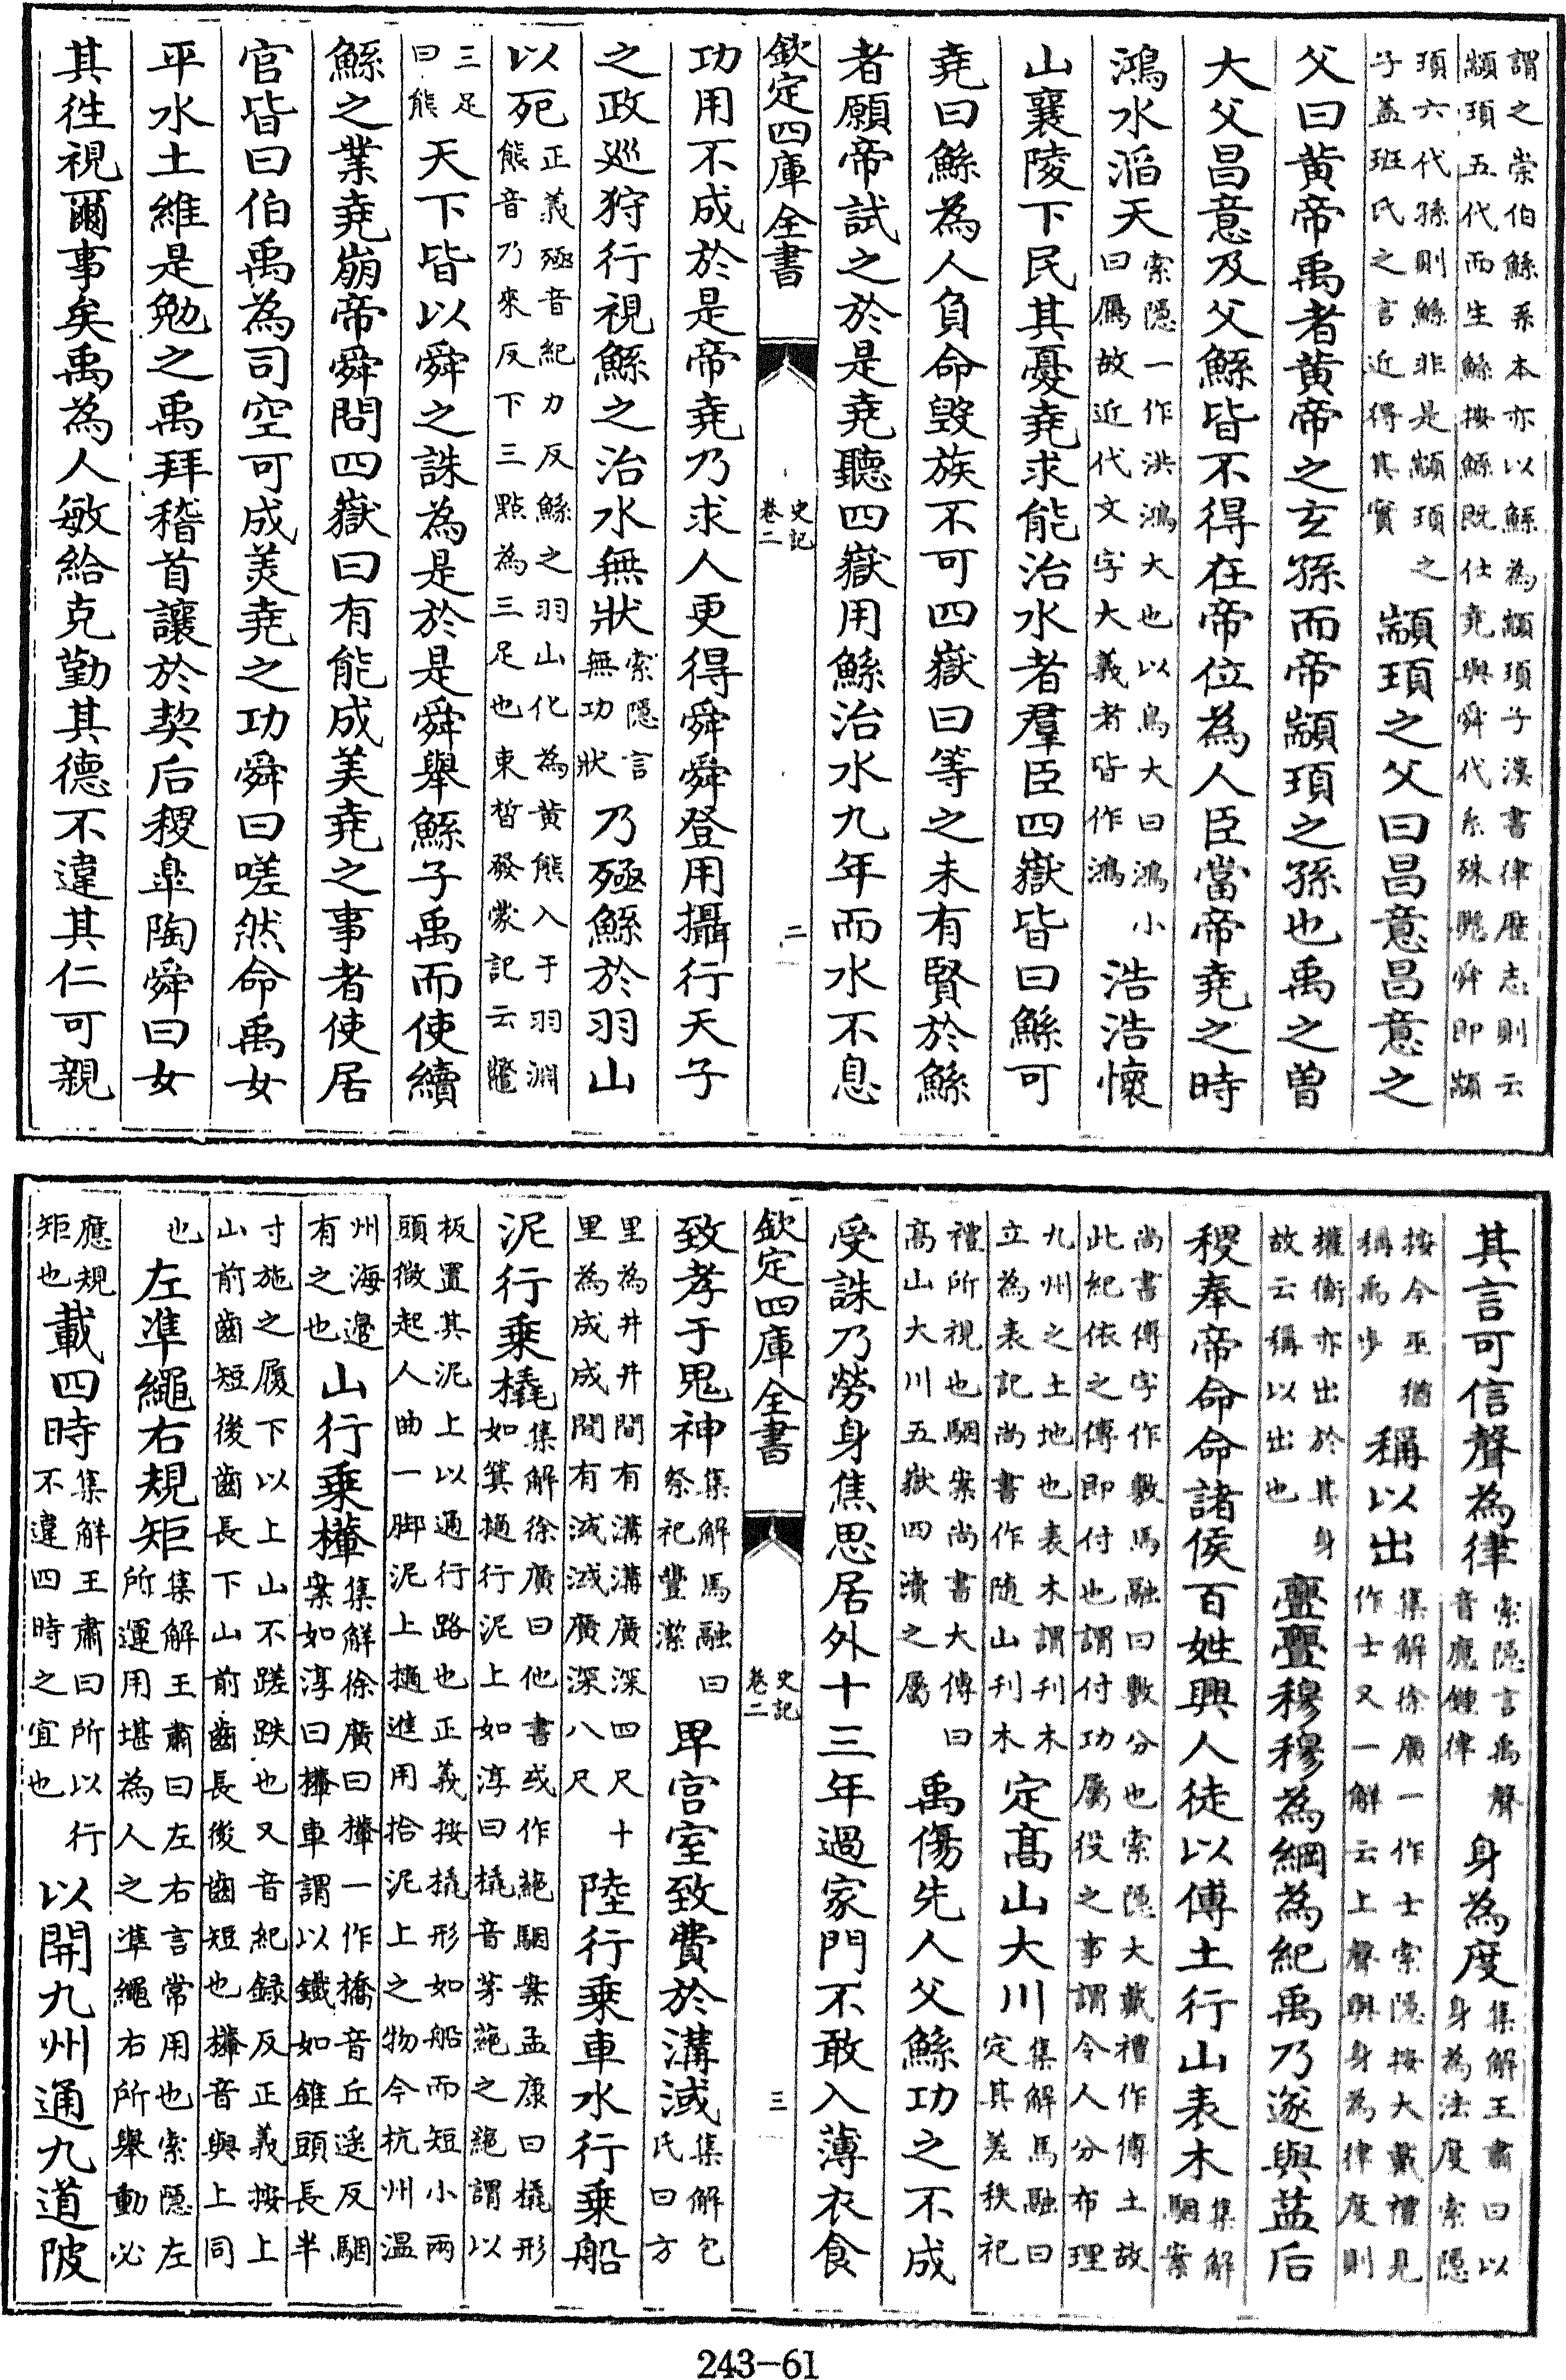 謂之崇伯鯀系本亦以鯀為顓頊子漢書律歴志則云
顓頊五代而生鯀按鯀既仕堯與舜代系殊懸舜即顓
頊六代孫則鯀非是顓頊之子盖班氏之言近得其實顓頊之父曰昌意昌意之
父曰黄帝禹者黄帝之玄孫而帝顓頊之孫也禹之曽
大父昌意及父鯀皆不得在帝位為人臣當帝堯之時
鴻水滔天索隠一作洪鴻大也以鳥大曰鴻小曰鴈故近代文字大義者皆作鴻浩浩懷
山襄陵下民其憂堯求能治水者羣臣四嶽皆曰鯀可
堯曰鯀為人負命毁族不可四嶽曰等之未有賢於鯀
者願帝試之於是堯聽四嶽用鯀治水九年而水不息
欽定四庫全書 史記卷二 二
功用不成於是帝堯乃求人更得舜舜登用攝行天子
之政廵狩行視鯀之治水無狀索隠言無功狀乃殛鯀於羽山
以死正義殛音紀力反鯀之羽山化為黄熊入于羽淵熊音乃來反下三點為三足也東晳發蒙記云鼈
三足曰熊天下皆以舜之誅為是於是舜舉鯀子禹而使續
鯀之業堯崩帝舜問四嶽曰有能成美堯之事者使居
官皆曰伯禹為司空可成美堯之功舜曰嗟然命禹女
平水土維是勉之禹拜稽首讓於契后稷臯陶舜曰女
其徃視爾事矣禹為人敏給克勤其德不違其仁可親
其言可信聲為律索隠言禹聲音應鍾律身為度集解王肅曰以身為法度索隠
按今巫猶稱禹步稱以出集解徐廣一作士索隠按大戴禮見作士又一解云上聲與身為律度則
權衡亦出於其身故云稱以出也亹亹穆穆為綱為紀禹乃遂與益后
稷奉帝命命諸侯百姓興人徒以傅土行山表木集解駰案
尚書傅字作敷馬融曰敷分也索隠大戴禮作傅土故此紀依之傅即付也謂付功屬役之事謂令人分布理
九州之土地也表木謂刋木立為表記尚書作隨山刋木定髙山大川集解馬融曰定其差秩祀
禮所視也駰案尚書大傳曰髙山大川五嶽四瀆之屬禹傷先人父鯀功之不成
受誅乃勞身焦思居外十三年過家門不敢入薄衣食
欽定四庫全書 史記卷二 三
致孝于鬼神集解馬融曰祭祀豐潔卑宫室致費於溝淢集解包氏曰方
里為井井間有溝溝廣深四尺十里為成成間有淢淢廣深八尺陸行乗車水行乗船
泥行乗橇集解徐廣曰他書或作蕝駰案孟康曰橇形如箕擿行泥上如淳曰橇音茅蕝之蕝謂以
板置其泥上以通行路也正義按橇形如船而短小兩頭微起人曲一脚泥上擿進用拾泥上之物今杭州温
州海邊有之也山行乗檋集解徐廣曰檋一作橋音丘遥反駰案如淳曰檋車謂以鐵如錐頭長半
寸施之履下以上山不蹉跌也又音紀録反正義按上山前齒短後齒長下山前齒長後齒短也檋音與上同
也左凖繩右規矩集解王肅曰左右言常用也索隠左所運用堪為人之凖繩右所舉動必
應規矩也載四時集解王肅曰所以行不違四時之宜也以開九州通九道陂
243-61